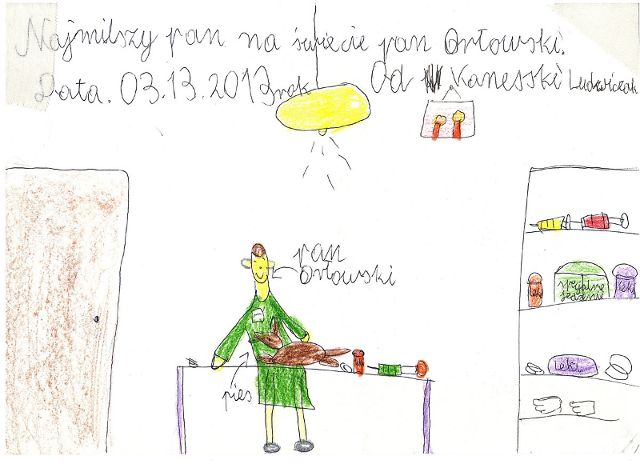 Najmilszy pan na świecie pan Orłowski.
Data. 03.13.2013 rok Od Vanesski Ludwiczak
pan
Orłowski
pies
leki
specjalne
jedzenie
leki
leki